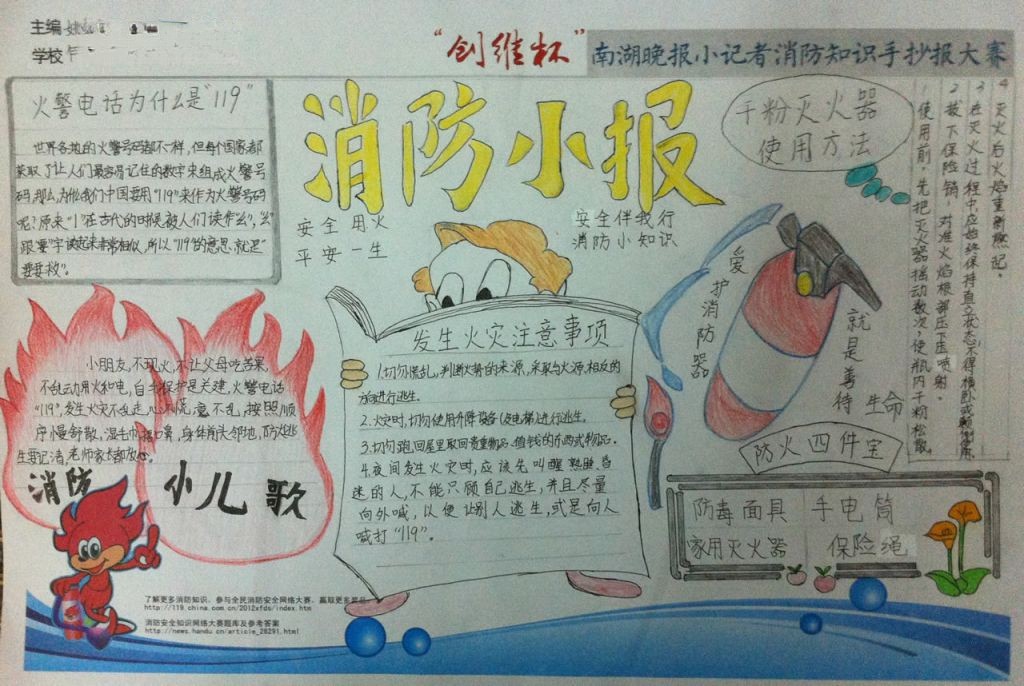 主编
学校
“创维杯”南湖晚报小记者消防知识手抄报大赛
火警电话为什么是“119”
世界各地的火警号码都不一样，但每个国家都
采取了让人们最容易记住的数字来组成火警号
码，那么，为什么我们中国要用“119”来作为火警号码
呢？原来“1”在古代的时候被人们读作“幺”，“幺”
跟“要”字读起来非常相似，所以“119”的意思，就是“
要要救”。
消防小报
安全用火
平安一生
安全伴我行
消防小知识
干粉灭火器
使用方法
1 使用前，先把灭火器摇动数次使瓶内干粉松散。
2 拔下保险销，对准火焰根部压下压把喷射。
3 在灭火过程中应始终保持直立状态，不得横卧或颠倒使用。
4 灭火后火焰重新燃起。
爱护消防器
就是善待生命
小朋友，不玩火，不让父母吃苦果，
不乱动用火和电，自我保护是关建，火警电话
“119”，发生火灾不乱走，心不慌，意不乱，按照顺
序慢舒散，湿毛巾捂口鼻，
生要记清，老师家长都放心。
消防
小儿歌
发生火灾注意事项
1.切勿慌乱，判断火势的来源，采取与火源相反的
方向进行逃生。
2.火灾时，切勿使用升降设备（及电梯）进行逃生。
3.切勿跑回屋里取回贵重物品、值钱的东西或物品。
4.夜间发生火灾时，应该先叫醒熟睡、昏
迷的人，不能只顾自己逃生，并且尽量
向外喊，以便让别人逃生，或是向人
喊打“119”。
防火四件宝
防毒面具 手电筒
家用灭火器 保险绳
了解更多消防知识、参与全民消防安全网络大赛、赢取更多奖品
http://119.china.com.cn/2012xfds/index.htm
消防安全知识网络大赛题库及参考答案
http://news.handu.cn/article_28291.html